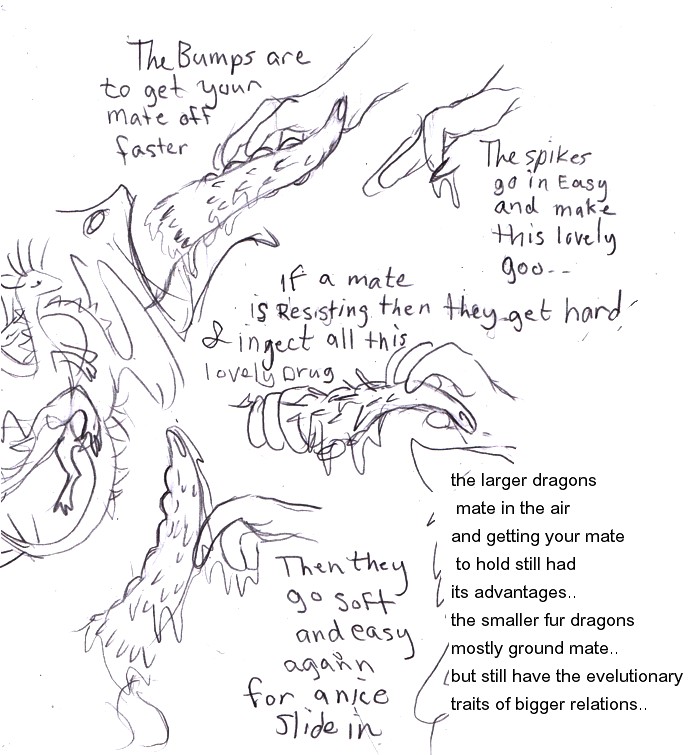 The Bumps are
to get your
mate off
faster
The spikes
go in Easy
and make
this lovely
goo--
If a mate
is Resisting then they get hard
& ingect all this
lovely Drug
the larger dragons
mate in the air
and getting your mate
to hold still had
its advantages..
the smaller fur dragons
mostly ground mate..
but still have the evelutionary
traits of bigger relations..
Then they
go soft
and easy
again
for a nice
Slide in